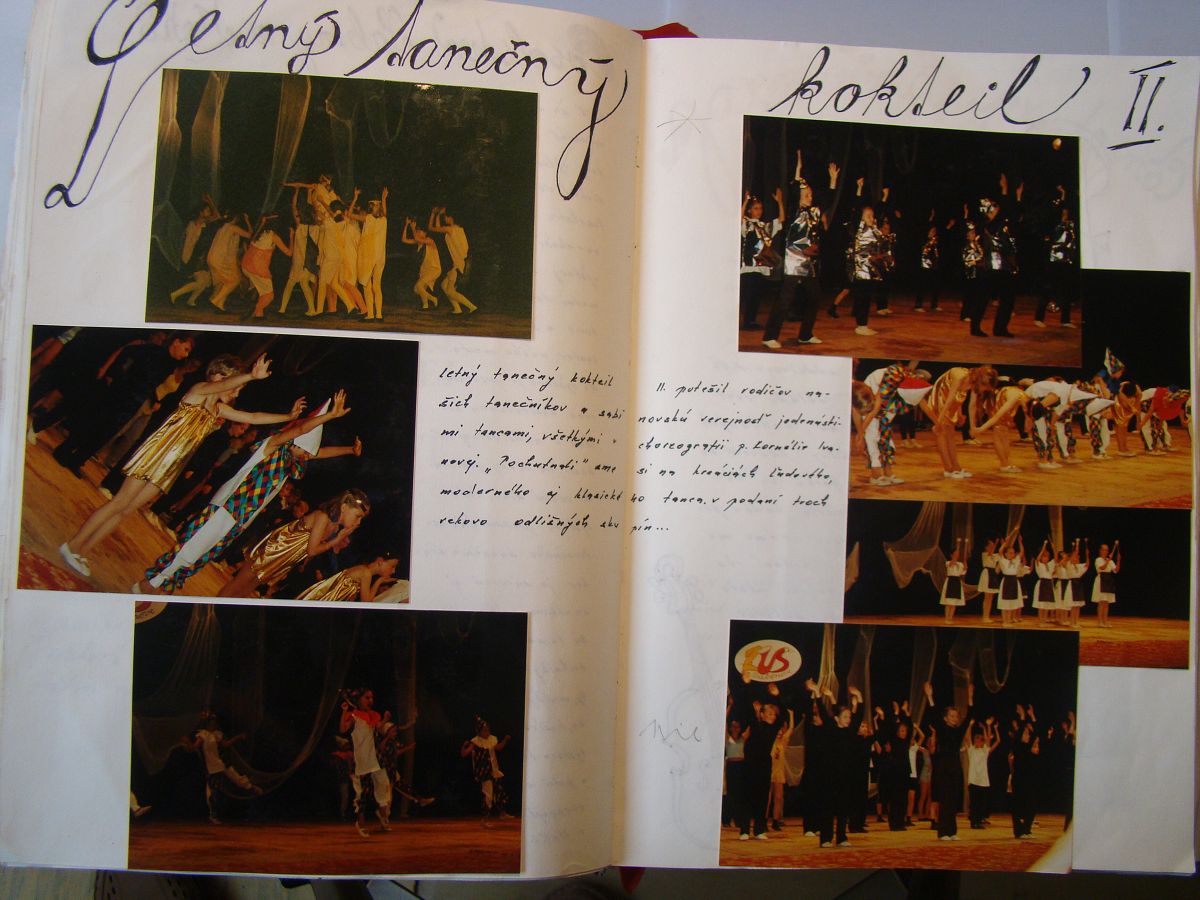 Letný tanečný kokteil II.
letný tanečný kokteil II. potešil rodičov na-
šich tanečníkov a sabinovskú verejnosť jedenásti-
mi tancami, všetkými v choreografii p. Kornélie Iva-
novej. „Pochutnali" sme si na kreáciách ľudového,
moderného aj klasického tanca v podaní troch
vekovo odlišných skupín...
nic
ZUŠ